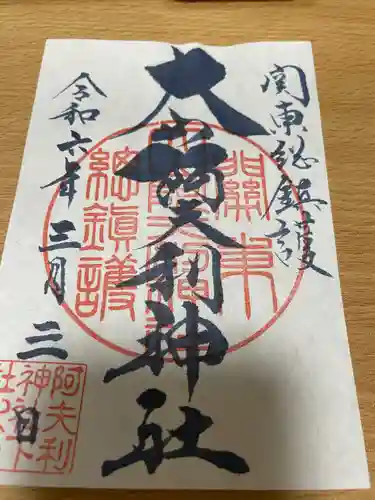 関東総鎮護
大山阿夫利神社
令和六年三月三日
關東
總鎮護
阿夫利
神社下
社